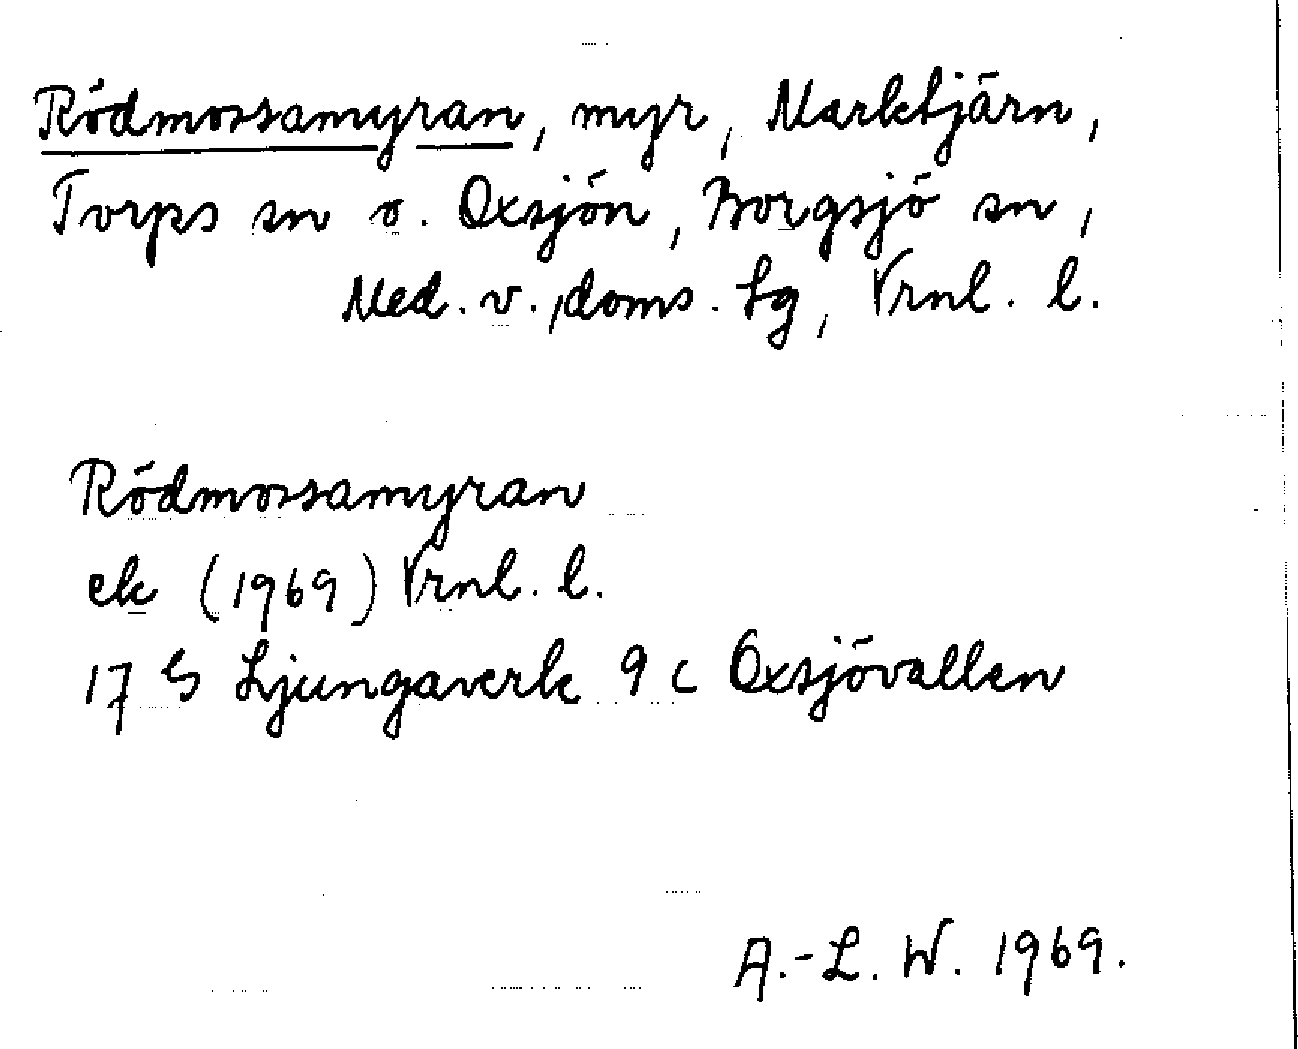 Rödmossamyran, myr, Marktjärn,
Torps sn o. Oxsjön, Borgsjö sn,
Med. v. doms. tg, Vrnl. l.
Rödmossamyran
ek (1969) Vrnl. l.
17 G Ljungaverk 9 c Oxsjövallen
A.-L. W. 1969.